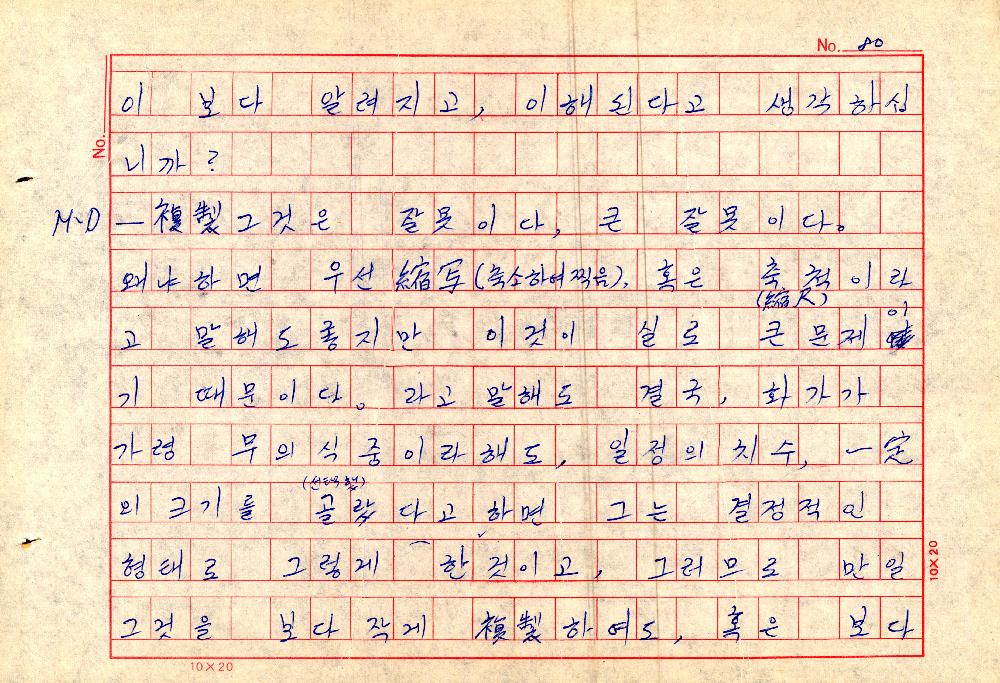 No. 80
No.
이 보다 알려지고, 이해된다고 생각하십
니까?
M-D — 複製 그것은 잘못이다, 큰 잘못이다.
왜냐하면 우선 縮写(축소하여 찍음), 혹은 축척이라
(縮尺)
고 말해도 좋지만 이것이 실로 큰 문제이
기 때문이다. 라고 말해도 결국, 화가가
가령 무의식중이라해도, 일정의 치수, 一定
(선택했)
의 크기를 골랐다고 하면 그는 결정적인
형태로 그렇게 한 것이고, 그러므로 만일
그것을 보다 작게 複製하여도, 혹은 보다
10×20
10×20